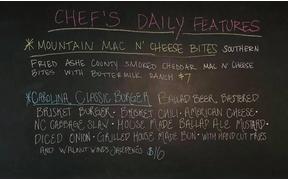 CHEF'S DAILY FEATURES
*MOUNTAIN MAC N' CHEESE BITES SOUTHERN
FRIED ASHE COUNTY SMOKED CHEDDAR MAC N' CHEESE
BITES WITH BUTTERMILK RANCH $7
*CAROLINA CLASSIC BURGER BALLAD BEER, BASTERED
BRISKET BURGER · BRISKET CHILI · AMERICAN CHEESE ·
NC CABBAGE SLAW · HOUSE MADE BALLAD ALE MUSTARD ·
DICED ONION · GRILLED HOUSE MADE BUN · WITH HAND CUT FRIES
AND $16